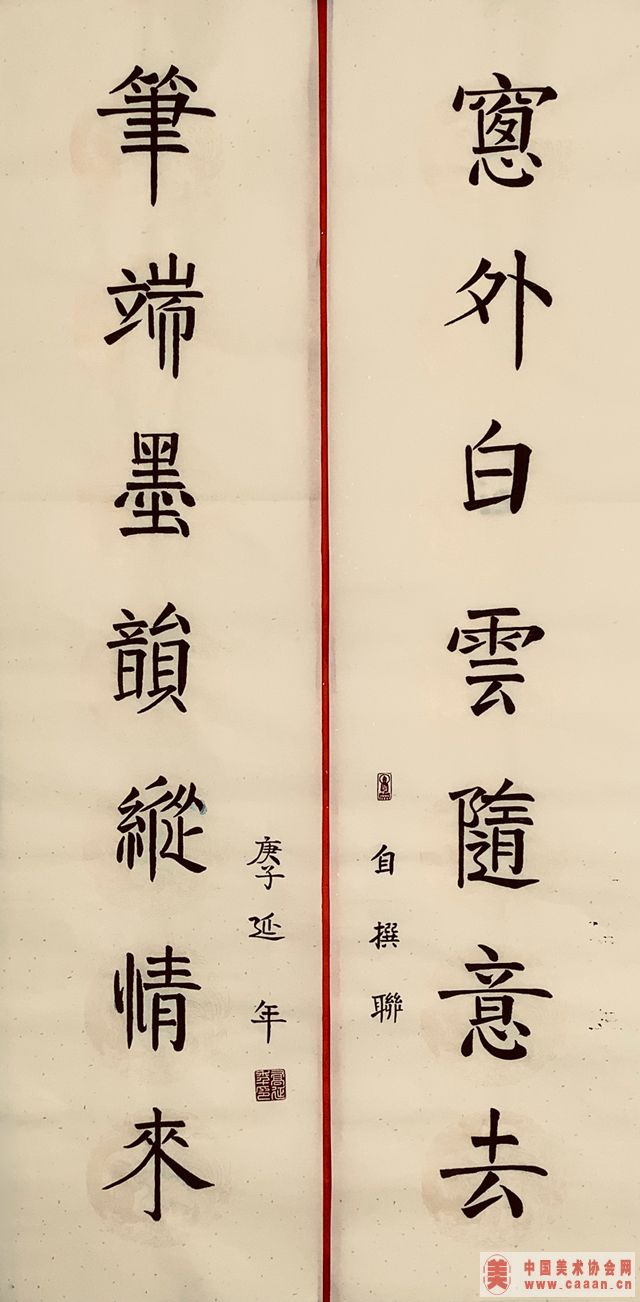 窻外白雲隨意去
自撰聯
筆端墨韻縱情來
庚子延年
中国美术协会网
www.caaan.cn